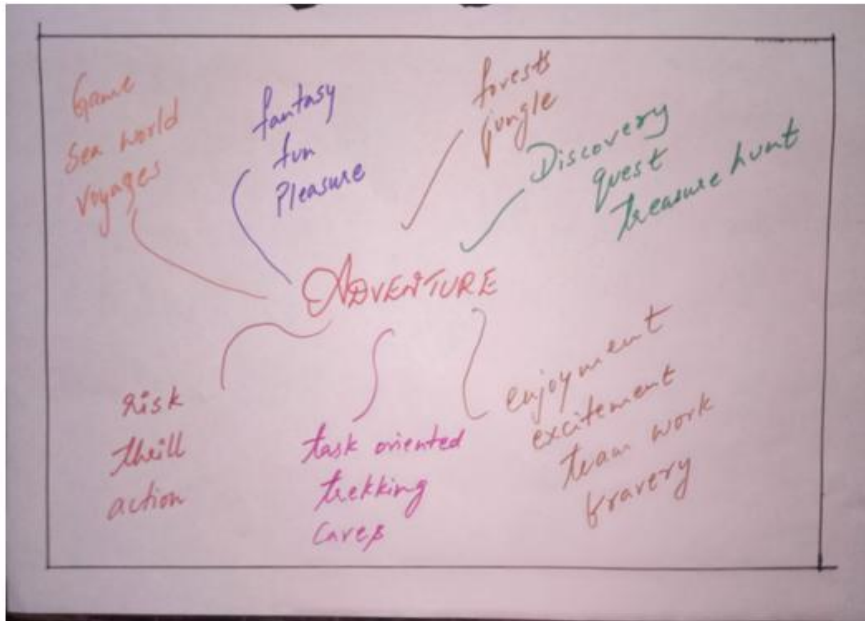 Game
Sea world
voyages
fantasy
fun
Pleasure
forests
jungle
Discovery
quest
treasure hunt
ADVENTURE
risk
thrill
action
task oriented
trekking
caves
enjoyment
excitement
team work
bravery